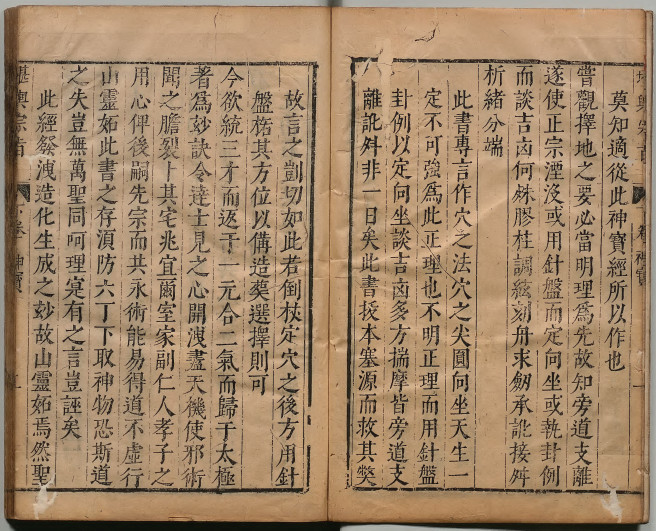 莫知適從此神寶經所以作也
嘗觀擇地之要必當明理為先故知旁道支離
遂使正宗湮沒或用針盤而定向坐或執卦例
而談吉凶何殊膠柱調絃刻舟求劒承訛接舛
析緒分端
此書專言作穴之法穴之尖圓向坐天生一
定不可強為此正理也不明正理而用針盤
卦例以定向坐談吉凶多方揣摩皆旁道支
離訛舛非一日矣此書拔本塞源而救其獘
故言之剴切如此若倒杖定穴之後方用針
盤格其方位以備造𦵏選擇則可
今欲統三才而返于一元合二氣而歸于太極
者為妙訣令達士見之心開洩盡天機使邪術
聞之膽裂卜其宅兆宜爾室家副仁人孝子之
用心俾後嗣先宗而其永術能易得道不虛行
山靈妬此書之存湏防六丁下取神物恐斯道
之失豈無萬聖同呵理寔有之言豈誣矣
此經發洩造化生成之妙故山靈妬焉然聖
堪輿宗旨
神寶